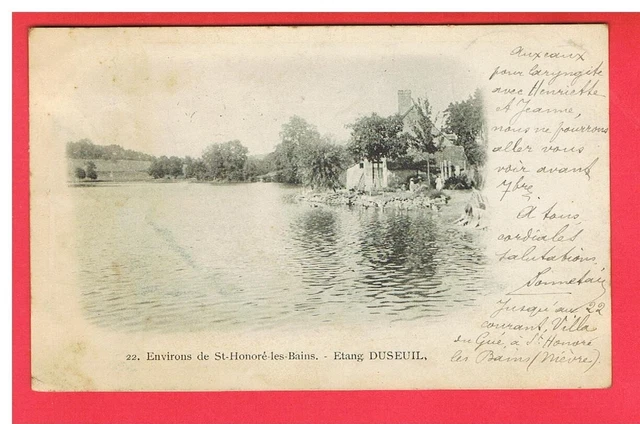 Aux eaux
pour laryngite
avec Henriette
et Jeanne,
nous ne pourrons
aller vous
voir avant
7bre
A tous
cordiales
salutations
Jusqu'au 22
courant, Villa
du Gué, à St Honoré
les Bains (Nièvre).
22. Environs de St-Honoré-les-Bains. - Etang DUSEUIL.